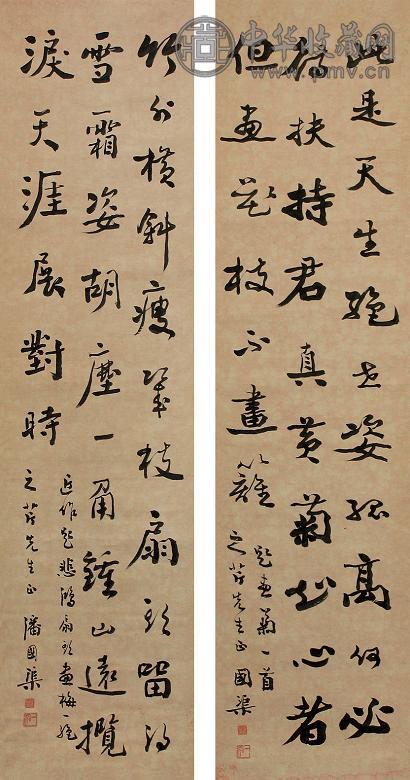 中华收藏网
此是天生絕世姿孤高何必
為扶持君真黃菊知心者
但畫花枝不畫籬
題畫菊一首
之 先生正 國渠
竹外橫斜瘦幾枝扇頭留得
雪霜姿胡塵一角鍾山遠攬
淚天涯展對時
近作題悲鴻扇頭畫梅一絕
之 先生正 潘國渠